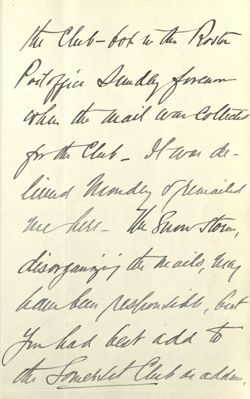 the Club-box in the Boston
Post office Sunday forenoon
when the mail was collected
for the Club - It was de-
livered Monday & remailed
me here - The Snow storm,
disorganizing the mails, may
have been responsible, but
you had best add to
the Somerset Club an address,